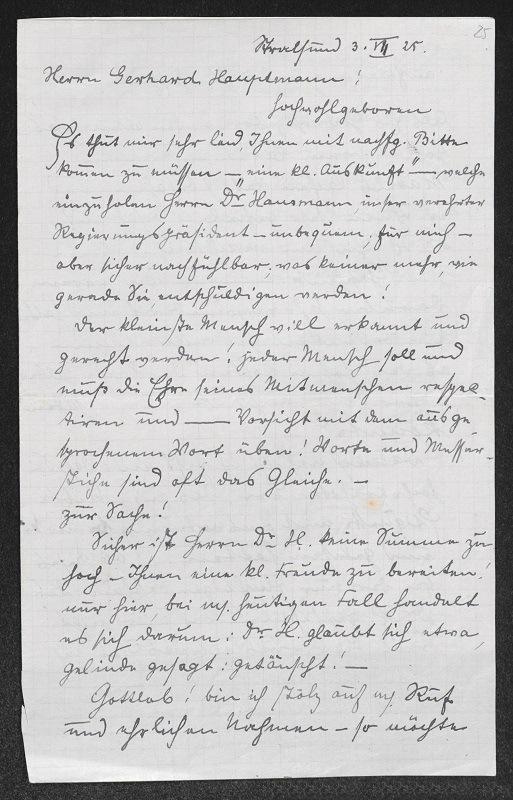 25
Stralsund 3. VII 25.
Herrn Gerhard Hauptmann!
Hochwohlgeboren
Es thut mir sehr leid, Ihnen mit nachfg. Bitte
kommen zu müssen – eine kl. Auskunft" – welche
einzuholen Herrn Dr. Hausmann, unser verehrter
Regierungspräsident – unbequem, für mich –
aber sicher nachfühlbar, was keiner mehr, wie
gerade Sie, entschuldigen werden!
Der kleinste Mensch will erkannt und
gerecht werden! jeder Mensch soll und
muß die Ehre seines Mitmenschen respek-
tiren und — Vorsicht mit dem ausge
sprochenem Wort üben! Worte und Messer-
stiche sind oft das Gleiche. –
zur Sache!
Sicher ist Herrn Dr. H. keine Summe zu
hoch – Ihnen eine kl. Freude zu bereiten!
nur hier, bei m/. heutigen Fall handelt
es sich darum: Dr. H. glaubt sich etwa,
gelinde gesagt: getäuscht! –
Gottlob! bin ich stolz auf m/. Ruf
und ehrlichen Nahmen – so möchte